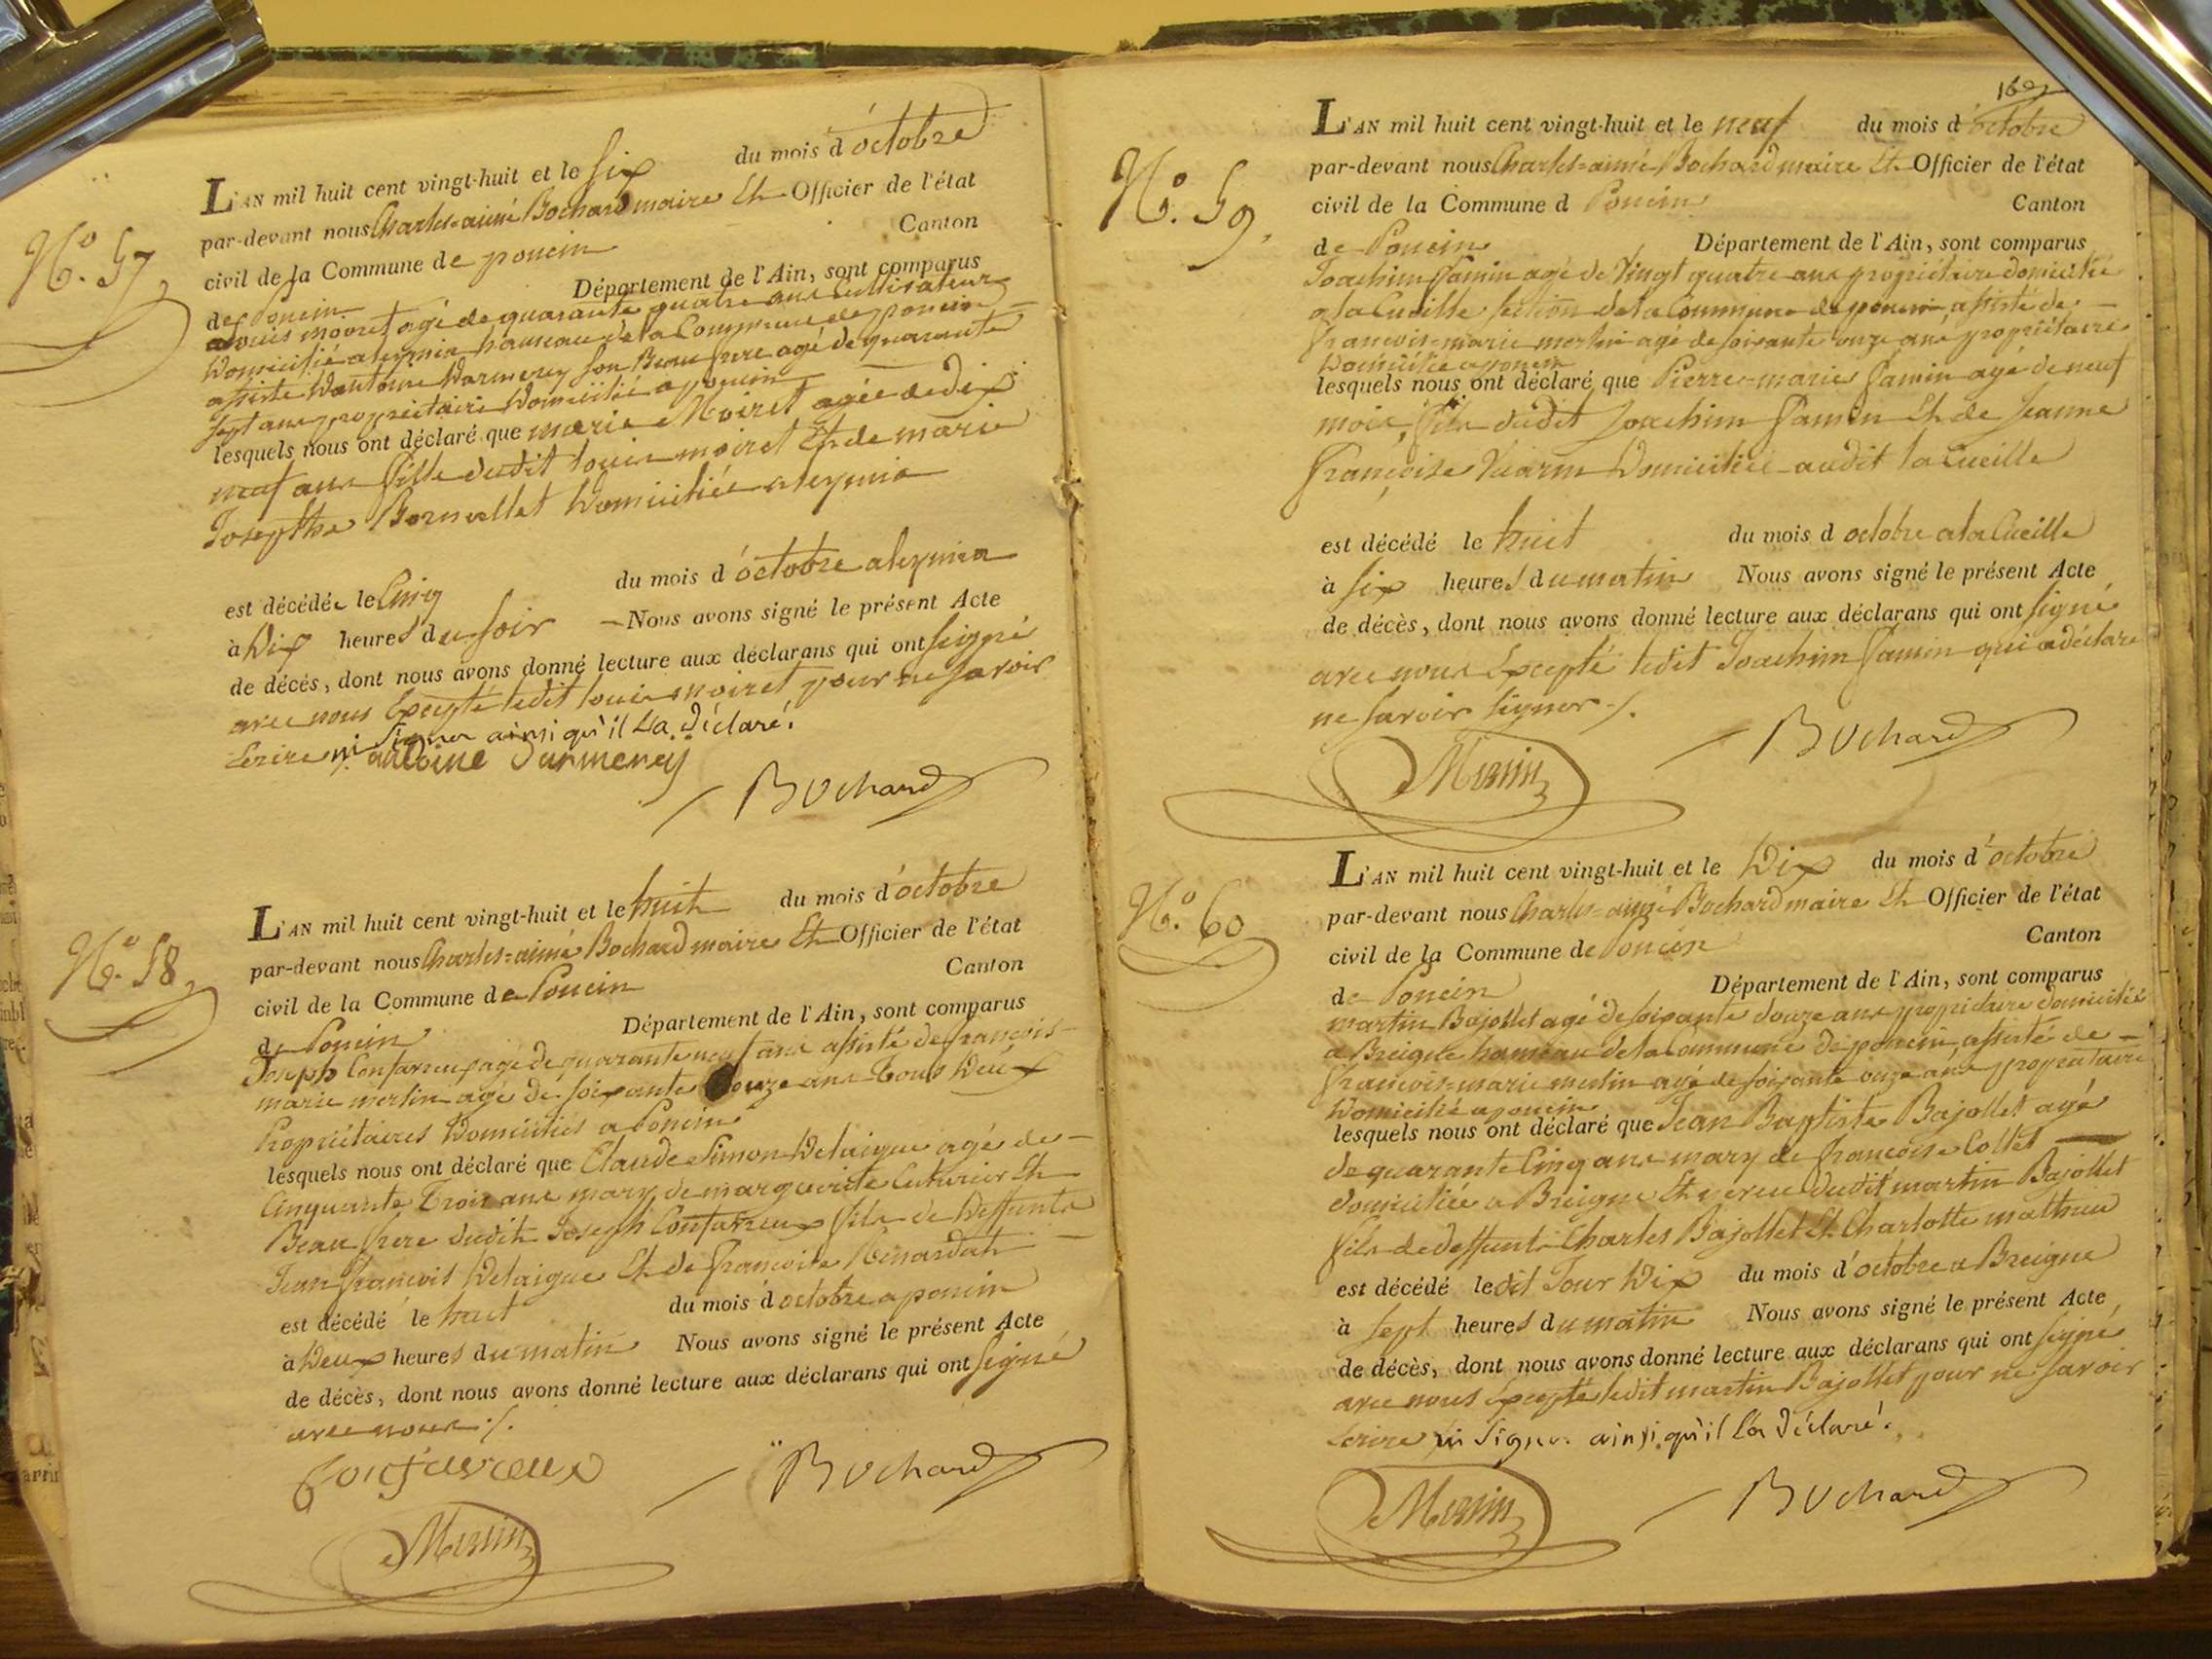 N.° 57,
L'AN mil huit cent vingt-huit et le six du mois d'octobre
par-devant nous Charles=aimé Bochard maire Et Officier de l'état
civil de la Commune de poncin Canton
de Poncin Département de l'Ain, sont comparus
Louis moiret agé de quarante quatre ans Cultivateur
Domicilié a leymia hameau de la Commune de poncin
assisté D'antoine Darmerey son Beau frere agé de quarante
sept ans proprietaire Domicilié a poncin
lesquels nous ont déclaré que marie Moiret agée de dix
neuf ans fille dudit louis moiret Et de marie
Josephte Bornallet Domiciliée a leymia
est décédée le Cinq du mois d'octobre a leymia
à Dix heures du soir Nous avons signé le présent Acte
de décès, dont nous avons donné lecture aux déclarans qui ont signé
avec nous Excepté ledit louis moiret pour ne savoir
Ecrire ni Signer ainsi qu'il l'a déclaré.
antoine Darmerey
Bochard
N.° 58,
L'AN mil huit cent vingt-huit et le huit du mois d'octobre
par-devant nous Charles=aimé Bochard maire Et Officier de l'état
civil de la Commune de Poncin Canton
de Poncin Département de l'Ain, sont comparus
Joseph Confavreux agé de quarante neuf ans assisté de françois
marie merlin agé de soixante onze ans Tous Deux
Propriétaires Domiciliés a Poncin
lesquels nous ont déclaré que Claude Simon Delaigue agé de
Cinquante Trois ans mary de marguerite Et
Beau frere dudit Joseph Confavreux fils de Deffunts
Jean françois Delaigue Et de françoise Renardat
est décédé le huit du mois d'octobre a poncin
à Deux heures du matin Nous avons signé le présent Acte
de décès, dont nous avons donné lecture aux déclarans qui ont signé
avec nous ./.
Confavreux
Bochard
Merlin
169
N.° 59,
L'AN mil huit cent vingt-huit et le neuf du mois d'octobre
par-devant nous Charles=aimé Bochard maire Et Officier de l'état
civil de la Commune d Poncin Canton
de Poncin Département de l'Ain, sont comparus
Joachim Jamin agé de Vingt quatre ans propriétaire domicilié
a la Cueille section de la Commune de poncin assisté de
françois=marie merlin agé de soixante onze ans propriétaire
Domicilié a poncin
lesquels nous ont déclaré que Pierre-marie Jamin agé de neuf
mois, fils dudit Joachim Jamin Et de Jeanne
françoise Domiciliée audit la Cueille
est décédé le huit du mois d octobre a la Cueille
à six heures du matin Nous avons signé le présent Acte
de décès, dont nous avons donné lecture aux déclarans qui ont signé
avec nous Excepté ledit Joachim Jamin qui a déclaré
ne savoir signer ./.
Bochard
Merlin
N.° 60
L'AN mil huit cent vingt-huit et le Dix du mois d'octobre
par-devant nous Charles=aimé Bochard maire Et Officier de l'état
civil de la Commune de Poncin Canton
de Poncin Département de l'Ain, sont comparus
martin Bajollet agé de soixante douze ans propriétaire domicilié
a Breigne hameau de la Commune de poncin, assisté de
françois=marie merlin agé de soixante onze ans propriétaire
Domicilié a poncin
lesquels nous ont déclaré que Jean Baptiste Bajollet agé
de quarante Cinq ans mary de françoise Collet
domiciliée a Breigne Et neveu dudit martin Bajollet
fils de deffunts Charles Bajollet Et Charlotte mathieu
est décédé ledit Jour Dix du mois d'octobre a Breigne
à sept heures du matin Nous avons signé le présent Acte
de décès, dont nous avons donné lecture aux déclarans qui ont signé
avec nous Excepté ledit martin Bajollet pour ne savoir
Ecrire ni Signer ainsi qu'il l'a déclaré.
Merlin
Bochard